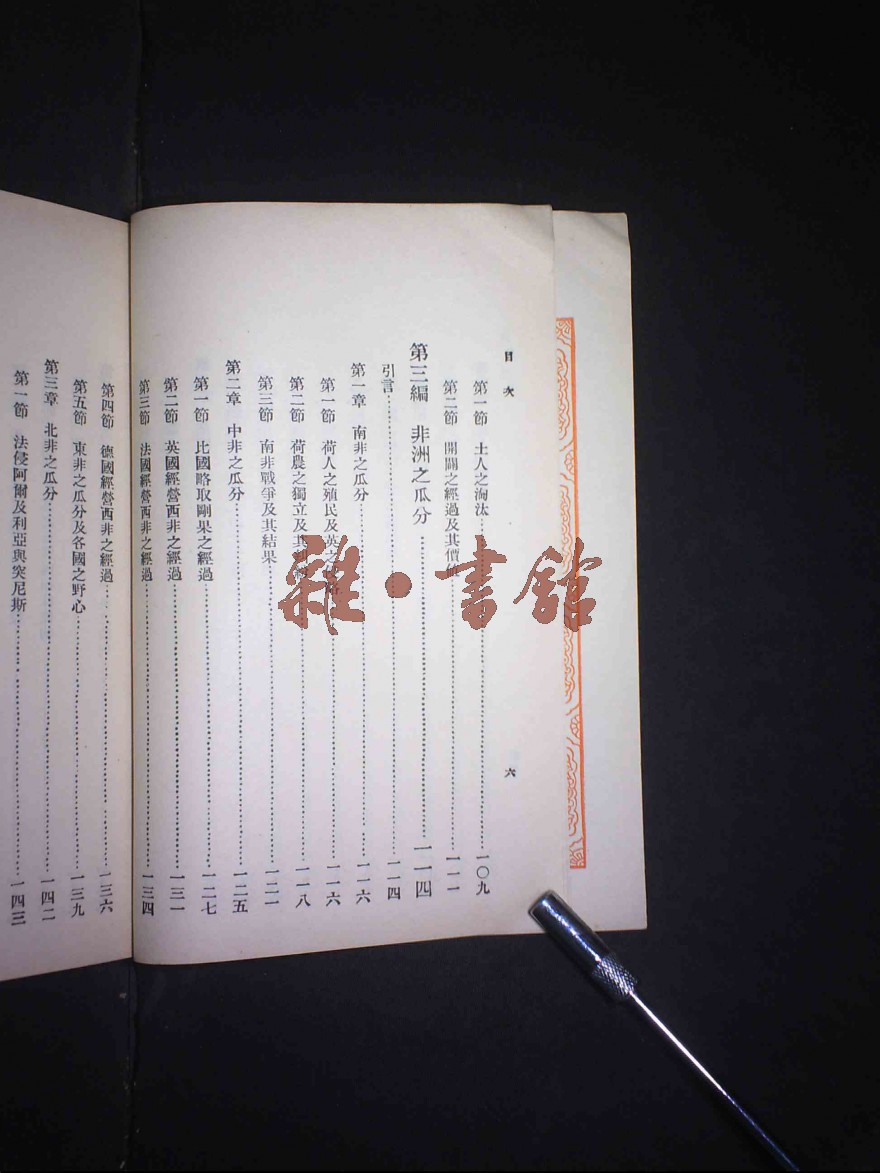 目次 六
第一節 土人之淘汰……一〇九
第二節 開闢之經過及其價值……一一一
第三編 非洲之瓜分……一一四
引言……一一四
第一章 南非之瓜分……一一六
第一節 荷人之殖民及英之……一一六
第二節 荷農之獨立及其……一一八
第三節 南非戰爭及其結果……一二一
第二章 中非之瓜分……一二五
第一節 比國略取剛果之經過……一二七
第二節 英國經營西非之經過……一三一
第三節 法國經營西非之經過……一三四
第四節 德國經營西非之經過……一三六
第五節 東非之瓜分及各國之野心……一三九
第三章 北非之瓜分……一四二
第一節 法侵阿爾及利亞與突尼斯……一四三
雜·書館